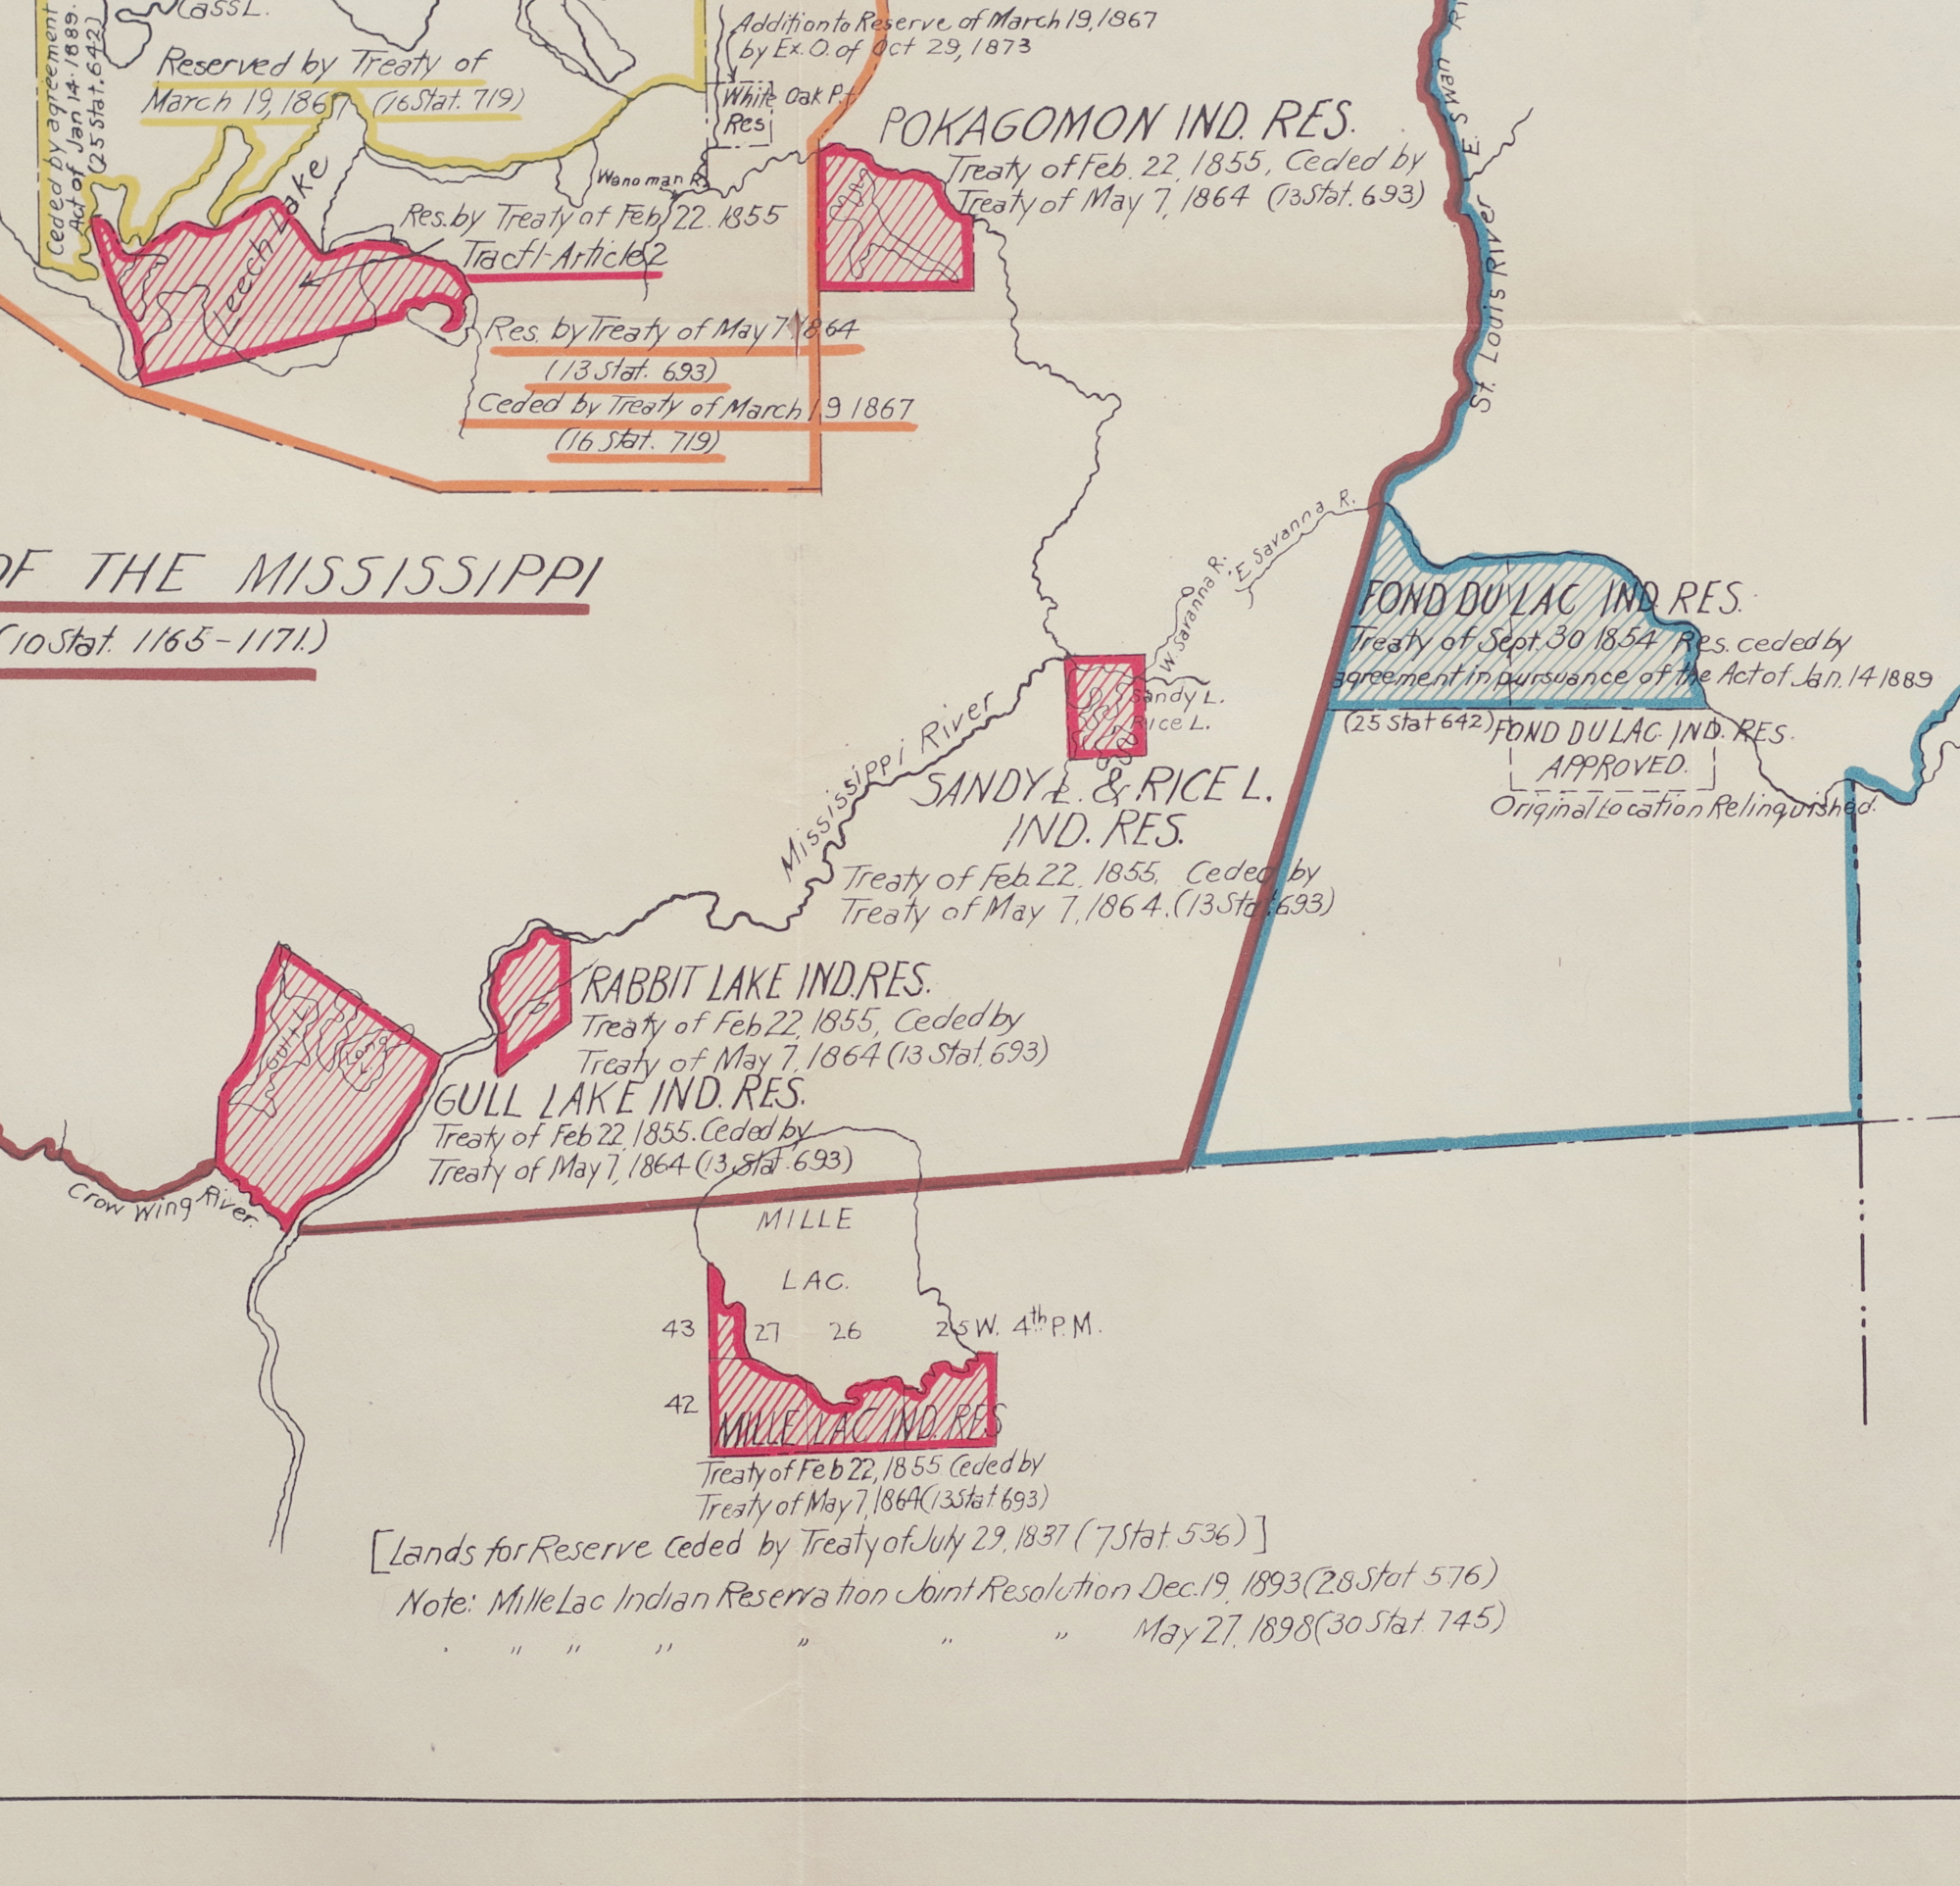 Cass L.
Ceded by agreement
Act of Jan 14-1889.
(25 Stat. 642)
Reserved by Treaty of
March 19, 1867 (16 Stat. 719)
Addition to Reserve of March 19, 1867
by Ex. O. of Oct 29, 1873
White Oak Pt
Res
POKAGOMON IND. RES.
Treaty of Feb. 22, 1855, Ceded by
Treaty of May 7, 1864 (13 Stat. 693)
Wanoman R.
Res. by Treaty of Feb 22. 1855
Tract 1-Article 2
Leech Lake
Res. by Treaty of May 7 1864
(13 Stat. 693)
Ceded by Treaty of March 19 1867
(16 Stat. 719)
E. Swan Ri
St. Louis River
OF THE MISSISSIPPI
(10 Stat. 1165-1171.)
E. Savanna R.
W. Savanna R.
FOND DU LAC IND. RES.
Treaty of Sept. 30 1854 Res. ceded by
agreement in pursuance of the Act of Jan. 14 1889
(25 Stat 642)
FOND DU LAC IND. RES.
APPROVED.
Original Location Relinquished.
Sandy L.
Rice L.
Mississippi River
SANDY L. & RICE L.
IND. RES.
Treaty of Feb. 22, 1855, Ceded by
Treaty of May 7, 1864. (13 Stat. 693)
RABBIT LAKE IND. RES.
Treaty of Feb 22, 1855, Ceded by
Treaty of May 7, 1864 (13 Stat. 693)
Gull L.
Long L.
GULL LAKE IND. RES.
Treaty of Feb 22, 1855. Ceded by
Treaty of May 7, 1864 (13 Stat. 693)
Crow Wing River.
MILLE
LAC.
43 27 26 25 W. 4th P. M.
42
MILLE LAC IND. RES
Treaty of Feb 22, 1855 Ceded by
Treaty of May 7, 1864 (13 Stat. 693)
[Lands for Reserve ceded by Treaty of July 29, 1837 (7 Stat. 536)]
Note: Mille Lac Indian Reservation Joint Resolution Dec. 19, 1893 (28 Stat 576)
" " " " " " " May 27, 1898 (30 Stat. 745)